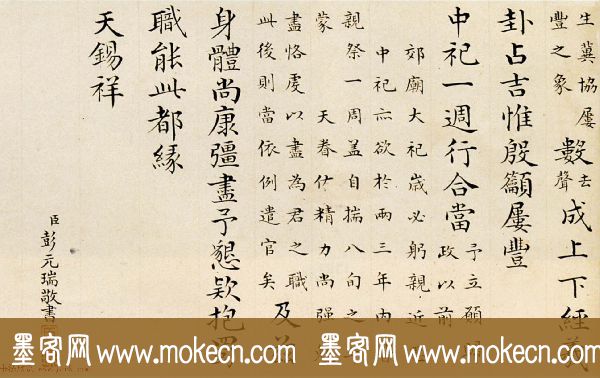 生蓂協屢
豐之象
數去聲成上下經義
卦占吉惟殷籲屢豐
中祀一週行合當
予立願
政以前
郊廟大祀歲必躬親近
中祀亦欲於兩三年內
親祭一周蓋自揣八旬之
蒙 天眷佑精力尚強
盡恪虔以盡為君之職
此後則當依例遣官矣
及
身體尚康彊盡予懇款抱
職能此都緣
天錫祥
臣彭元瑞敬書
墨客网 www.mokecn.com 墨客网 www.mokecn.com